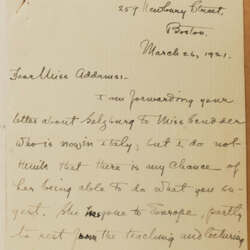 259 Newbury Street,
Boston.
March 26, 1921.
Dear Miss Addams:-
I am forwarding your
letter about Salzburg to Miss Scudder
who is now in Italy, but I do not
think that there is any chance of
her being able to do what you sug-
gest. She has gone to Europe, partly
to rest from the teaching and lecturing